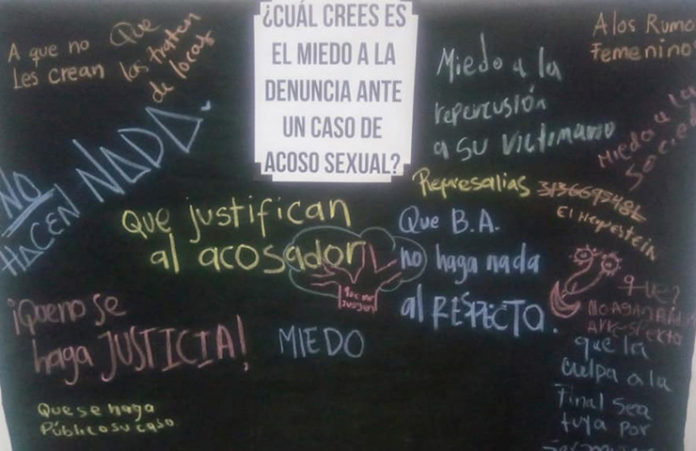 ¿CUÁL CREES ES
EL MIEDO A LA
DENUNCIA ANTE
UN CASO DE
ACOSO SEXUAL?
A que no
Les Crean
Que
las tratten
de locas
NO
HACEN NADA.
Miedo a la
repercusión
a su victimario
A los Rumo
Femenino
Miedo a la
Represalias
Que justifican
al acosador
Que B.A.
no haga nada
al RESPECTO.
¡Que no se
haga JUSTICIA!
MIEDO
Que se haga
Público su caso
que?
que la
culpa a la
Final sea
tuya por